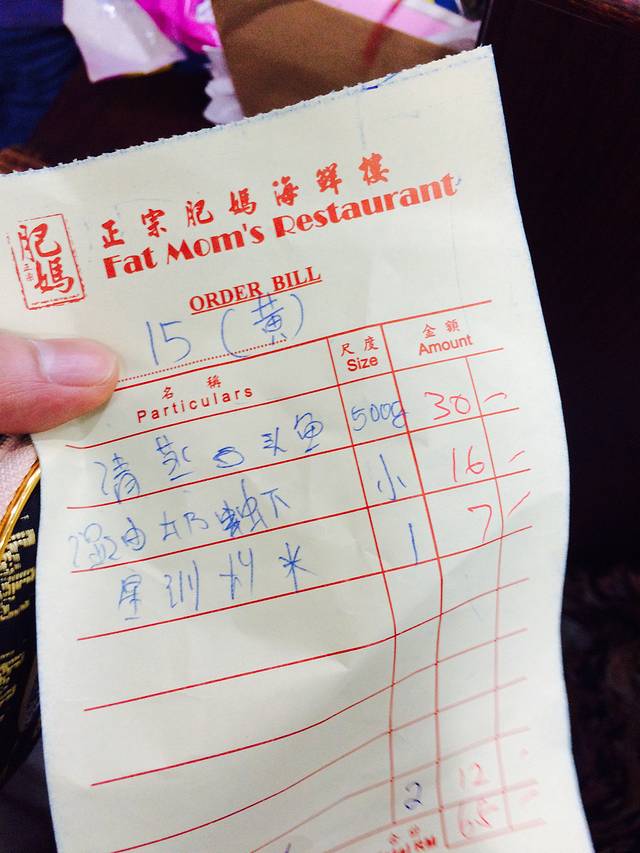 正宗肥媽海鮮樓
肥媽
正宗
Fat Mom's Restaurant
ORDER BILL
15 (黄)
名稱 尺度 金額
Particulars Size Amount
清蒸 头鱼 500g 30 -
湿由奶 虾 小 16 -
星洲炒米 1 7 -
2 12 -
65 -